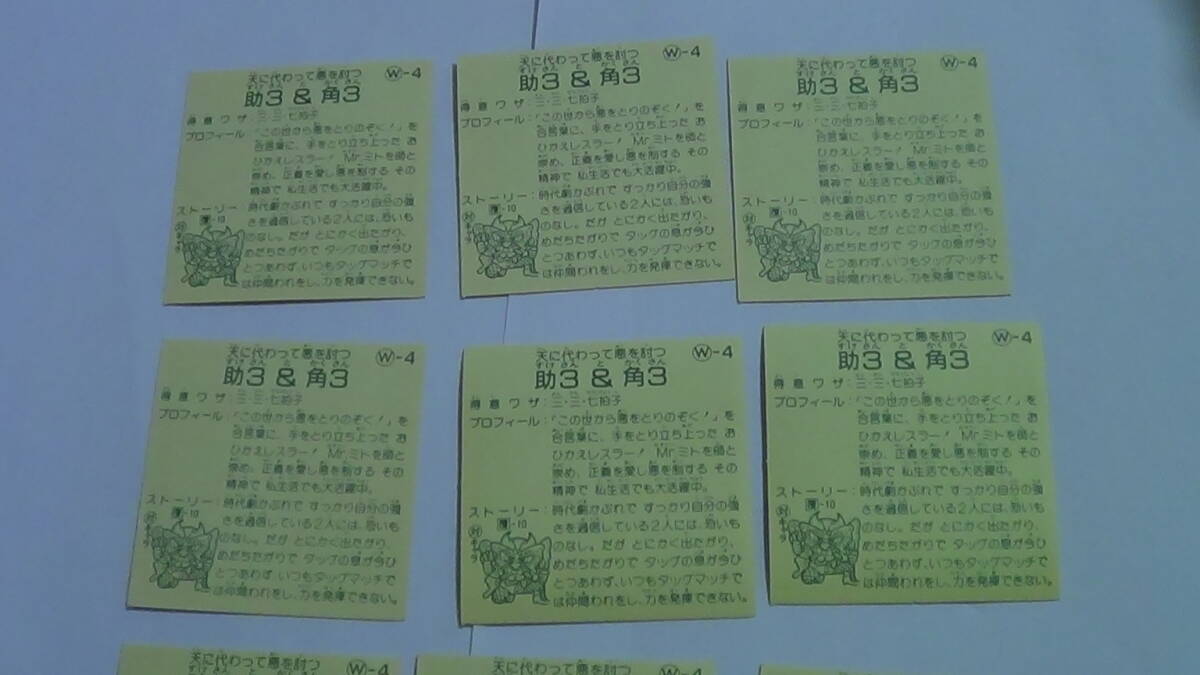 天に代わって悪を討つ Ⓦ-4
すけさん と かくさん
助3 & 角3
得意ワザ:三・三・七拍子
プロフィール:「この世から悪をとりのぞく!」を
合言葉に、手をとり立ち上った お
ひかえレスラー! Mr.ミトを師と
崇め、正義を愛し悪を制する その
精神で 私生活でも大活躍中。
ストーリー:時代劇かぶれで すっかり自分の強
さを過信している2人には、恐いも
のなし。だが とにかく出たがり、
めだちたがりで タッグの息が今ひ
とつあわず、いつもタッグマッチで
は仲間われをし、力を発揮できない。
対キャラ
-10
天に代わって悪を討つ Ⓦ-4
すけさん と かくさん
助3 & 角3
得意ワザ:三・三・七拍子
プロフィール:「この世から悪をとりのぞく!」を
合言葉に、手をとり立ち上った お
ひかえレスラー! Mr.ミトを師と
崇め、正義を愛し悪を制する その
精神で 私生活でも大活躍中。
ストーリー:時代劇かぶれで すっかり自分の強
さを過信している2人には、恐いも
のなし。だが とにかく出たがり、
めだちたがりで タッグの息が今ひ
とつあわず、いつもタッグマッチで
は仲間われをし、力を発揮できない。
対キャラ
-10
天に代わって悪を討つ Ⓦ-4
すけさん と かくさん
助3 & 角3
得意ワザ:三・三・七拍子
プロフィール:「この世から悪をとりのぞく!」を
合言葉に、手をとり立ち上った お
ひかえレスラー! Mr.ミトを師と
崇め、正義を愛し悪を制する その
精神で 私生活でも大活躍中。
ストーリー:時代劇かぶれで すっかり自分の強
さを過信している2人には、恐いも
のなし。だが とにかく出たがり、
めだちたがりで タッグの息が今ひ
とつあわず、いつもタッグマッチで
は仲間われをし、力を発揮できない。
対キャラ
-10
天に代わって悪を討つ Ⓦ-4
すけさん と かくさん
助3 & 角3
得意ワザ:三・三・七拍子
プロフィール:「この世から悪をとりのぞく!」を
合言葉に、手をとり立ち上った お
ひかえレスラー! Mr.ミトを師と
崇め、正義を愛し悪を制する その
精神で 私生活でも大活躍中。
ストーリー:時代劇かぶれで すっかり自分の強
さを過信している2人には、恐いも
のなし。だが とにかく出たがり、
めだちたがりで タッグの息が今ひ
とつあわず、いつもタッグマッチで
は仲間われをし、力を発揮できない。
対キャラ
-10
天に代わって悪を討つ Ⓦ-4
すけさん と かくさん
助3 & 角3
得意ワザ:三・三・七拍子
プロフィール:「この世から悪をとりのぞく!」を
合言葉に、手をとり立ち上った お
ひかえレスラー! Mr.ミトを師と
崇め、正義を愛し悪を制する その
精神で 私生活でも大活躍中。
ストーリー:時代劇かぶれで すっかり自分の強
さを過信している2人には、恐いも
のなし。だが とにかく出たがり、
めだちたがりで タッグの息が今ひ
とつあわず、いつもタッグマッチで
は仲間われをし、力を発揮できない。
対キャラ
-10
天に代わって悪を討つ Ⓦ-4
すけさん と かくさん
助3 & 角3
得意ワザ:三・三・七拍子
プロフィール:「この世から悪をとりのぞく!」を
合言葉に、手をとり立ち上った お
ひかえレスラー! Mr.ミトを師と
崇め、正義を愛し悪を制する その
精神で 私生活でも大活躍中。
ストーリー:時代劇かぶれで すっかり自分の強
さを過信している2人には、恐いも
のなし。だが とにかく出たがり、
めだちたがりで タッグの息が今ひ
とつあわず、いつもタッグマッチで
は仲間われをし、力を発揮できない。
対キャラ
-10
天に代わって悪を討つ Ⓦ-4
すけさん と かくさん
天に代わって悪を討つ Ⓦ-4